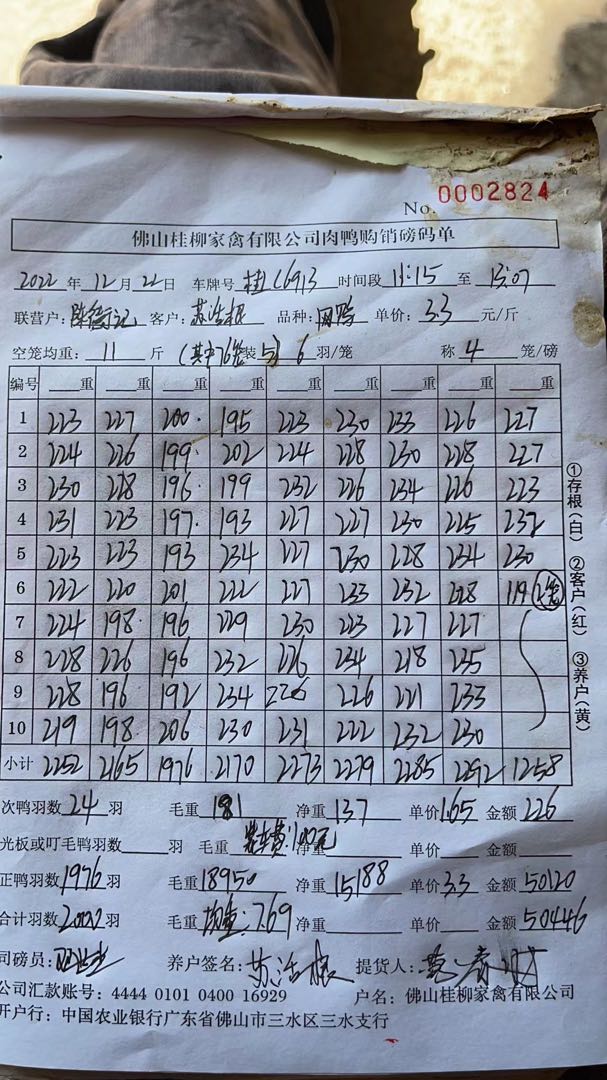 No. 0002824
佛山桂柳家禽有限公司肉鸭购销磅码单
2022 年 12 月 22 日 车牌号 桂C6913 时间段 11:15 至 13:07
联营户: 客户: 品种: 单价: 3.3 元/斤
空笼均重: 11 斤 (其中76笼装5) 6 羽/笼 称 4 笼/磅
编号 重 重 重 重 重 重 重 重 重
1 223 227 200 195 223 230 233 226 227
2 224 226 199 202 224 228 230 228 227
3 230 228 196 199 232 226 234 226 223
4 231 223 197 193 227 227 230 225 232
5 223 223 193 234 227 230 228 234 230
6 222 220 201 222 227 233 232 228 119 (2笼)
7 224 198 196 229 230 223 227 227
8 228 226 196 232 226 234 218 235
9 228 196 192 234 226 226 221 233
10 219 198 206 230 231 222 232 230
小计 2252 2165 1976 2170 2273 2279 2285 2292 1258
次鸭羽数 24 羽 毛重 181 净重 137 单价 1.65 金额 226
光板或叮毛鸭羽数 羽 毛重 净重 单价 金额
正鸭羽数 1976 羽 毛重 18950 净重 15188 单价 3.3 金额 50120
合计羽数 2000 羽 毛重 均重:7.69 净重 单价 金额 50446
司磅员: 养户签名: 提货人:
公司汇款账号: 4444 0101 0400 16929 户名: 佛山桂柳家禽有限公司
开户行: 中国农业银行广东省佛山市三水区三水支行
①存根(白) ②客户(红) ③养户(黄)